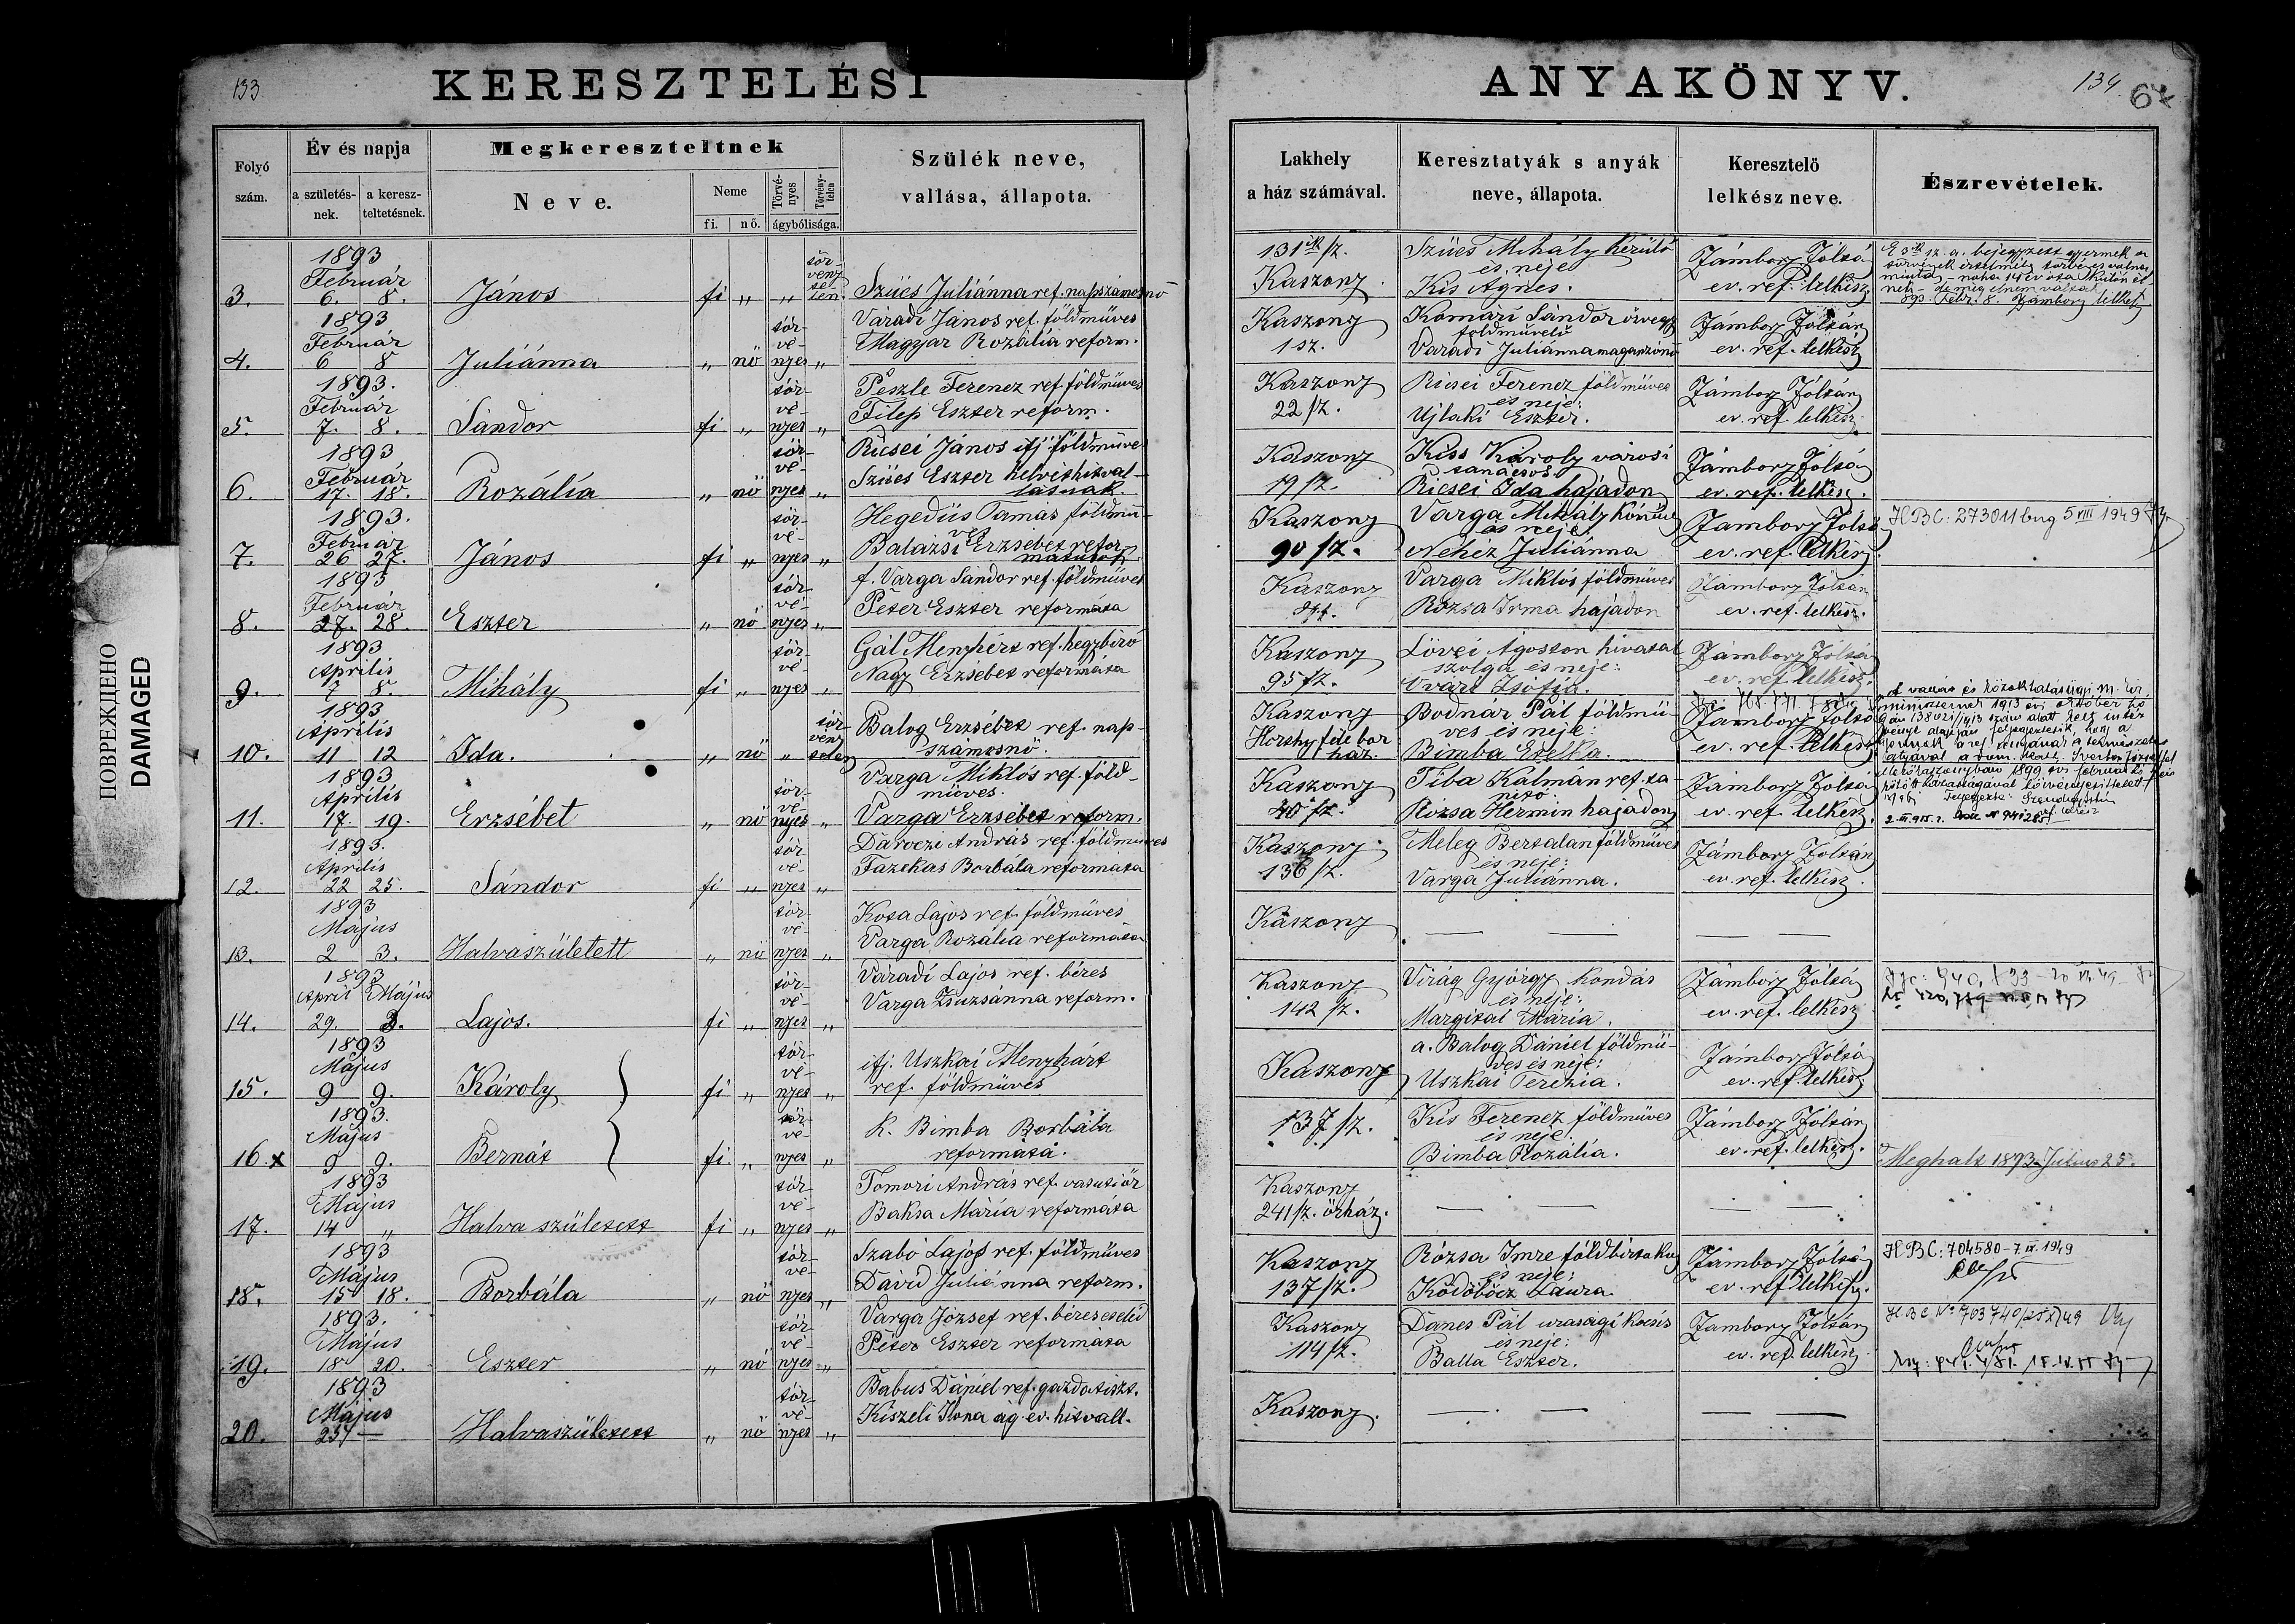 133.
KERESZTELÉSI
ANYAKÖNYV.
134.
64
Folyó szám.
Év és napja
a születés-nek.
a keresz-teltetésnek.
Megkereszteltnek
Neve.
Neme
fi. nő.
Törvé-nyes
Törvény-telen
ágybólisága.
Szülék neve,
vallása, állapota.
Lakhely
a ház számával.
Keresztatyák s anyák
neve, állapota.
Keresztelö
lelkész neve.
Észrevételek.
ПОВРЕЖДЕНО
DAMAGED
1893
Február
3. 6. 8. János fi „ „ tör-vény-te-len. Szücs Juliánna ref. napszámosnő
131ik sz.
Kaszony
Szücs Mihály kerülő
és neje
Kis Ágnes.
Jámbory Zoltán
ev. ref. lelkész
1893
Február
4. 6 8 Juliánna „ nő tör-vé-nyes „
Váradi János ref. földmüves
Magyar Rozália reform.
Kaszony
1 sz.
Komári Sándor özvegy
földmüvelő
Váradi Juliánna maganzónő
Jámbory Zoltán
ev. ref. lelkész
1893.
Február
5. 7. 8. Sándor fi „ tör-vé-nyes „
Peszle Ferencz ref. földmüves
Filep Eszter reform.
Kaszony
22 sz.
Ricsei Ferencz földmüves
és neje:
Ujlaki Eszter.
Jámbory Zoltán
ev. ref. lelkész.
1893
Február
6. 17. 18. Rozália „ nő tör-vé-nyes „
Ricsei János ifj. földmüves
Szücs Eszter helvét hitval-
lásuak.
Kaszony
19 sz.
Kiss Károly városi
tanácsos
Ricsei Ida hajadon
Jámbory Zoltán
ev. ref. lelkész.
1893.
Február
7. 26 27. János fi „ tör-vé-nyes „
Hegedüs Tamás földmü-
ves
Balázsi Erzsébet refor-
mátusok
Kaszony
90 sz.
Varga Mihály
és neje
Nehéz Juliánna
Jámbory Zoltán
ev. ref. lelkész
HBC: 273011 5 VIII 1949
1893
Február
8. 27. 28. Eszter „ nő tör-vé-nyes „
f. Varga Sándor ref. földmüves
Péter Eszter református
Kaszony
Varga Miklós földmüves
Rózsa Irma hajadon
Jámbory Zoltán
ev. ref. lelkész.
1893
Április
9. 7 8. Mihály fi „ tör-vé-nyes „
Gál Menyhért ref. hegybiró
Nagy Erzsébet református
Kaszony
95 sz.
Lövei Ágoston hivatal
szolga és neje:
Uvári Zsófia.
Jámbory Zoltán
ev. ref. lelkész.
1893
Április
10. 11 12 Ida. „ nő „ tör-vény-telen
Balog Erzsébet ref. nap-
számosnő.
Kaszony
Horthy féle bor
ház.
Bodnár Pál földmü-
ves és neje:
Bimba Etelka.
Jámbory Zoltán
ev. ref. lelkész
1893
Április
11. 17. 19. Erzsébet „ nő tör-vé-nyes „
Varga Miklós ref. föld-
müves.
Varga Erzsébet reform.
Kaszony
40 sz.
Tiba Kálmán ref. ta-
nító
Rózsa Hermin hajadon
Jámbory Zoltán
ev. ref. lelkész.
1893.
Április
12. 22 25. Sándor fi „ tör-vé-nyes „
Daróczi András ref. földmüves
Fazekas Borbála református
Kaszony
136 sz.
Meleg Bertalan földmüves
és neje:
Varga Juliánna.
Jámbory Zoltán
ev. ref. lelkész.
1893
Május
13. 2 3. Halvaszületett „ nő tör-vé-nyes „
Kosa Lajos ref. földmüves
Varga Rozália református
Kaszony
1893
April Május
14. 29. 2. Lajos. fi „ tör-vé-nyes „
Váradi Lajos ref. béres
Varga Zsuzsánna reform.
Kaszony
142 sz.
Virág György kondás
és neje:
Margitai Mária.
Jámbory Zoltán
ev. ref. lelkész
1893
Május
15. 9 9. Károly fi „ tör-vé-nyes „
ifj. Uszkai Menyhárt
ref. földmüves
Kaszony
a. Balog Dániel földmü-
ves és neje:
Uszkai Terézia.
Jámbory Zoltán
ev. ref. lelkész
1893.
Május
16. x 9 9. Bernát fi. „ tör-vé-nyes „
k. Bimba Borbála
református.
137 sz.
Kis Ferencz földmüves
és neje:
Bimba Rozália.
Jámbory Zoltán
ev. ref. lelkész.
Meghalt 1893 Julius 25.
1893
Május
17. 14 „ Halva született fi „ tör-vé-nyes „
Tomori András ref. vasuti őr
Baksa Mária református
Kaszony
241 sz. őrház.
1893
Május
18. 15 18. Borbála „ nő tör-vé-nyes „
Szabó Lajos ref. földmüves
Dávid Juliánna reform.
Kaszony
137 sz.
Rózsa Imre földbirtokos
és neje:
Ködöböcz Laura
Jámbory Zoltán
ev. ref. lelkész.
HBC: 704580 - 7. IX. 1949
1893.
Május
19. 18 20. Eszter „ nő tör-vé-nyes „
Varga József ref. béres cseléd
Péter Eszter református
Kaszony
114 sz.
Dános Pál urasági kocsis
és neje:
Balla Eszter.
Jámbory Zoltán
ev. ref. lelkész
1893
Május
20. 25 — Halvaszületett „ nő tör-vé-nyes „
Babus Dániel ref. gazdatiszt.
Kiszeli Ilona ág. ev. hitvall.
Kaszony.